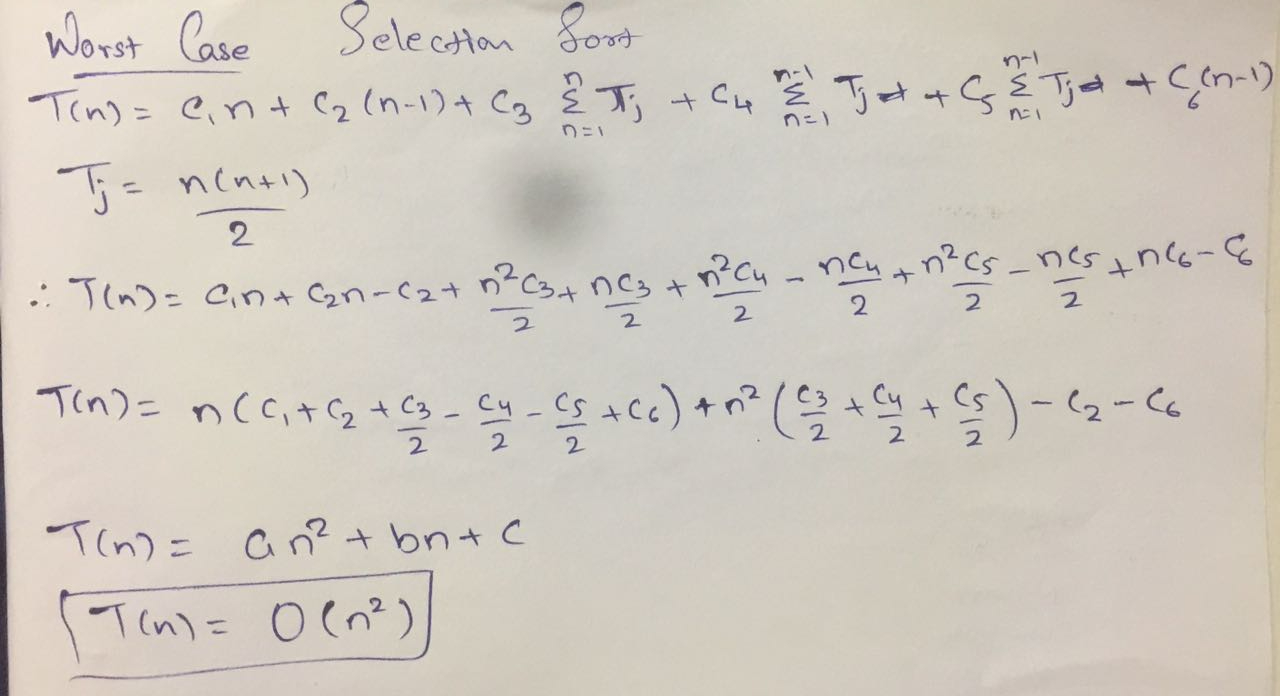 Worst Case Selection Sort
T(n) = C₁n + C₂(n-1) + C₃ Σₙ₌₁ⁿ Tj + C₄ Σₙ₌₁ⁿ⁻¹ Tj + C₅ Σₙ₌₁ⁿ⁻¹ Tj + C₆(n-1)
Tj = n(n+1)/2
∴ T(n) = C₁n + C₂n - C₂ + n²C₃/2 + nC₃/2 + n²C₄/2 - nC₄/2 + n²C₅/2 - nC₅/2 + nC₆ - C₆
T(n) = n(C₁ + C₂ + C₃/2 - C₄/2 - C₅/2 + C₆) + n²(C₃/2 + C₄/2 + C₅/2) - C₂ - C₆
T(n) = an² + bn + C
T(n) = O(n²)